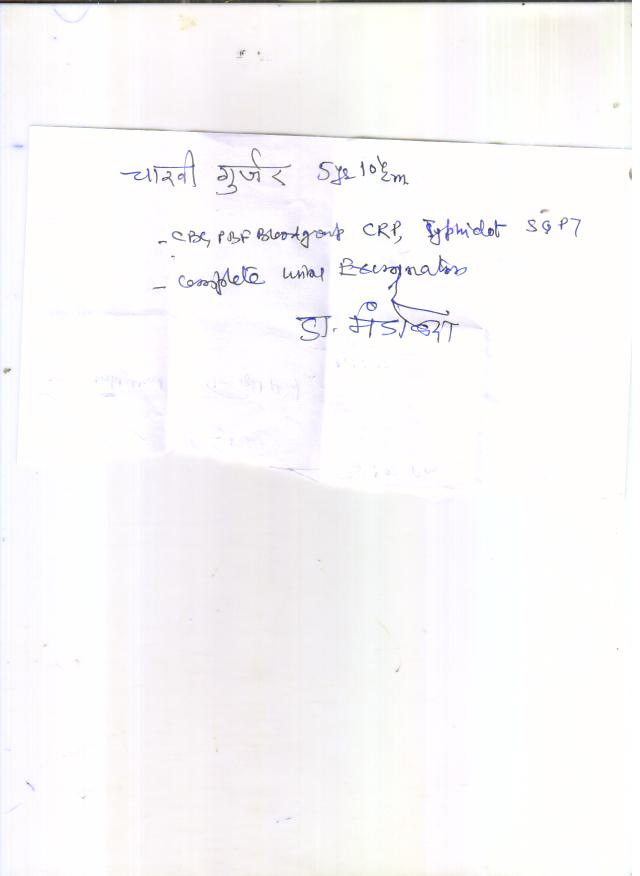 चारवी गुर्जर 5yr
- CBC, PBF Bloodgroup CRP, Typhidot SGPT
- complete urine Examination
डा.